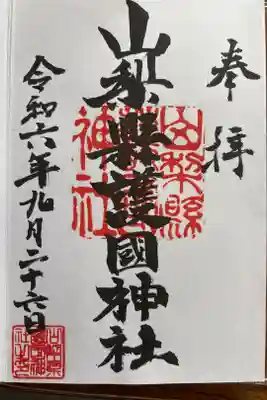 奉拝
山梨縣護國神社
山梨縣
神社
令和六年九月二十六日